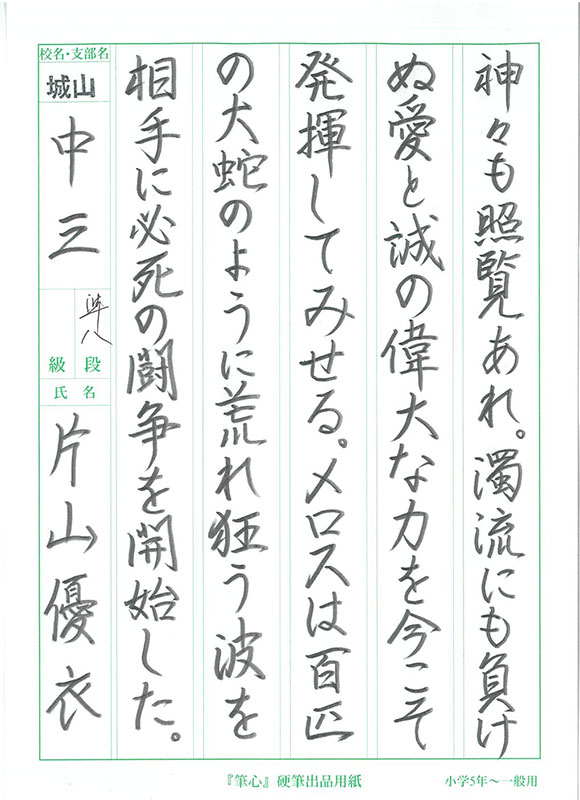 神々も照覧あれ。濁流にも負け
ぬ愛と誠の偉大な力を今こそ
発揮してみせる。メロスは百匹
の大蛇のように荒れ狂う波を
相手に必死の闘争を開始した。
校名・支部名
城山
中三
準八
段
級
氏名
片山優衣
『筆心』硬筆出品用紙
小学5年～一般用